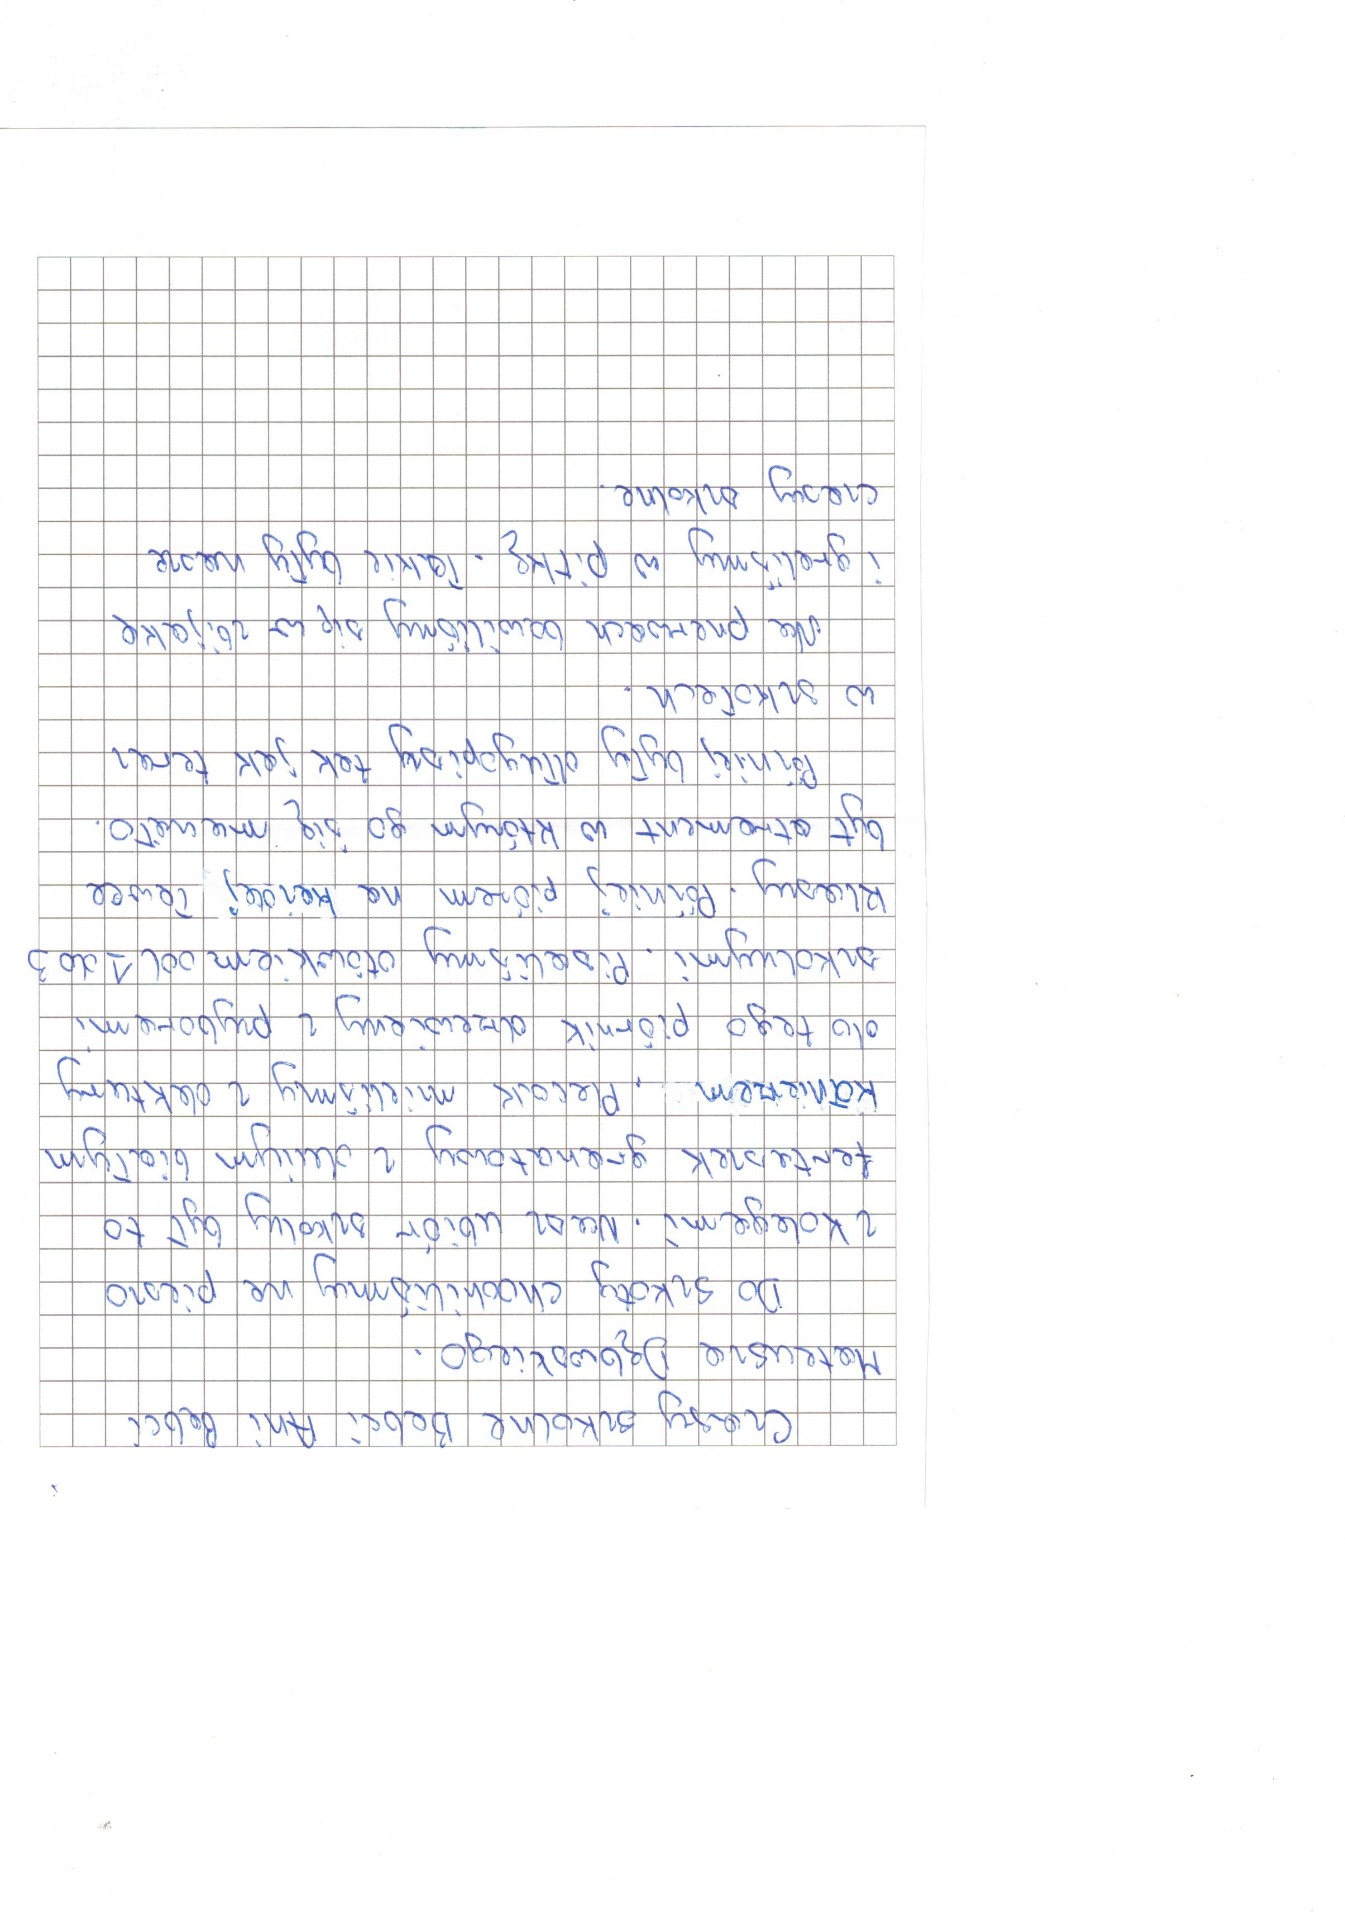 Czasy szkolne Babci Ani Babci
Mateusza Dębowskiego.
Do szkoły chodziliśmy na pieszo
z kolegami. Nasz ubiór szkolny był to
fartuszek granatowy z białym
kołnierzem. Plecak mieliśmy z dektury
do tego piórnik drewniany z przyborami
szkolnymi. Pisaliśmy ołówkiem od 1 do 3
klasy. Później piórem na każdej ławce
był atrament w którym go się maczało.
Później były długopisy tak jak teraz
w szkołach.
Na przerwach bawiliśmy się w zbijaka
i graliśmy w piłkę. Takie były nasze
czasy szkolne.